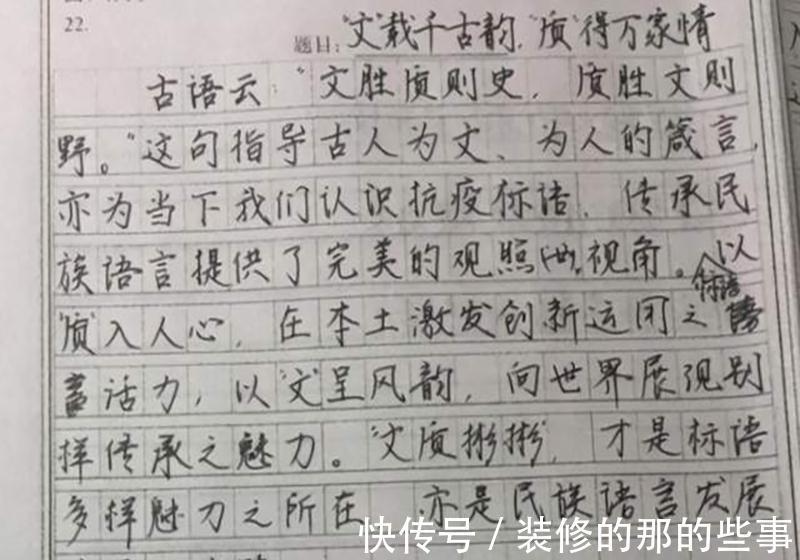 22.
题目：“文”载千古韵，“质”得万家情
古语云：“文胜质则史，质胜文则
野。”这句指导古人为文、为人的箴言，
亦为当下我们认识抗疫标语、传承民
族语言提供了完美的观照视角。以
标语
“质”入人心，在本土激发创新运用之
言活力，以“文”呈风韵，向世界展现别
样传承之魅力。“文质彬彬”，才是标语
多样魅力之所在，亦是民族语言发展
快传号 / 装修的那的些事